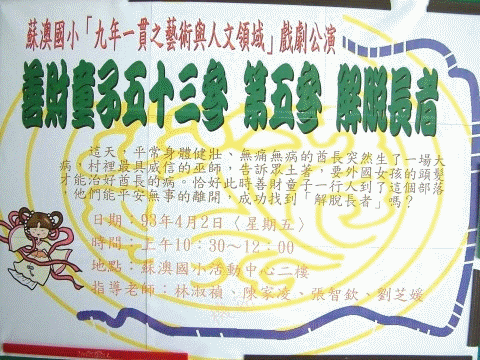 蘇澳國小「九年一貫之藝術與人文領域」戲劇公演
善財童子五十三參 第五參 解脫長者
這天，平常身體健壯、無痛無病的酋長突然生了一場大
病，村裡最具威信的巫師，告訴眾土著，要外國女孩的頭髮
才能治好酋長的病。恰好此時善財童子一行人到了這個部落
，他們能平安無事的離開，成功找到「解脫長者」嗎？
日期：93年4月2日〈星期五〉
時間：上午10：30～12：00
地點：蘇澳國小活動中心二樓
指導老師：林淑楨、陳家凌、張智欽、劉芝媛